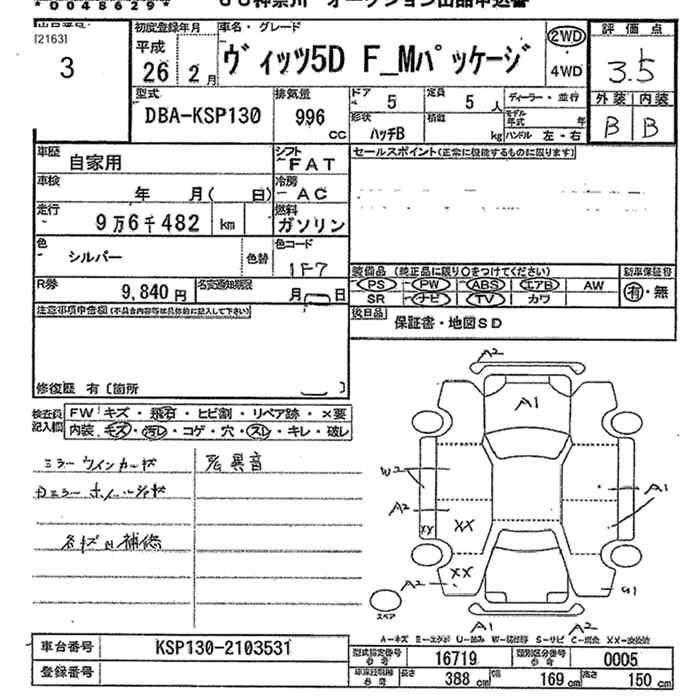 *0048629*
ＪＵ神奈川 オークション出品申込書
出品番号
[2163]
3
初度登録年月
平成
26年 2月
車名・グレード
ヴィッツ5D F_Mパッケージ
2WD
・
4WD
評価点
3.5
外装 内装
B B
型式
DBA-KSP130
排気量
996
CC
ドア
5
定員
5 人
ディーラー・並行
形状
ハッチB
積載
kg
モデル年式 年
ハンドル 左・右
車歴
自家用
シフト
FAT
セールスポイント(正常に機能するものに限ります)
車検
年 月( 日)
冷房
AC
走行
9万6千482 km
燃料
ガソリン
色
シルバー
色替
色コード
1F7
装備品 (純正品に限り○をつけてください)
新車保証書
PS PW ABS エアB AW
有・無
SR ナビ TV カワ
R券
9,840円
名変通知期限
月 日
後日品
保証書・地図SD
注意事項申告欄(不具合内容等は具体的に記入して下さい)
修復歴 有〔箇所
検査員記入欄
FW キズ・飛石・ヒビ割・リペア跡・×要
内装 キズ・汚レ・コゲ・穴・スレ・キレ・破レ
ミラーウインカー状
異音
ホイール
各キズ凹補修
A2
A1
W2
A2
XX
XX
XX
A2
A1
A1
A2
スペア
A-キズ E-エクボ U-凹み W-補修跡 S-サビ C-腐食 XX-交換済
車台番号
KSP130-2103531
登録番号
型式指定番号
参考
16719
類別区分番号
参考
0005
車庫証明用
参考
長さ
388 cm
幅
169 cm
高さ
150 cm